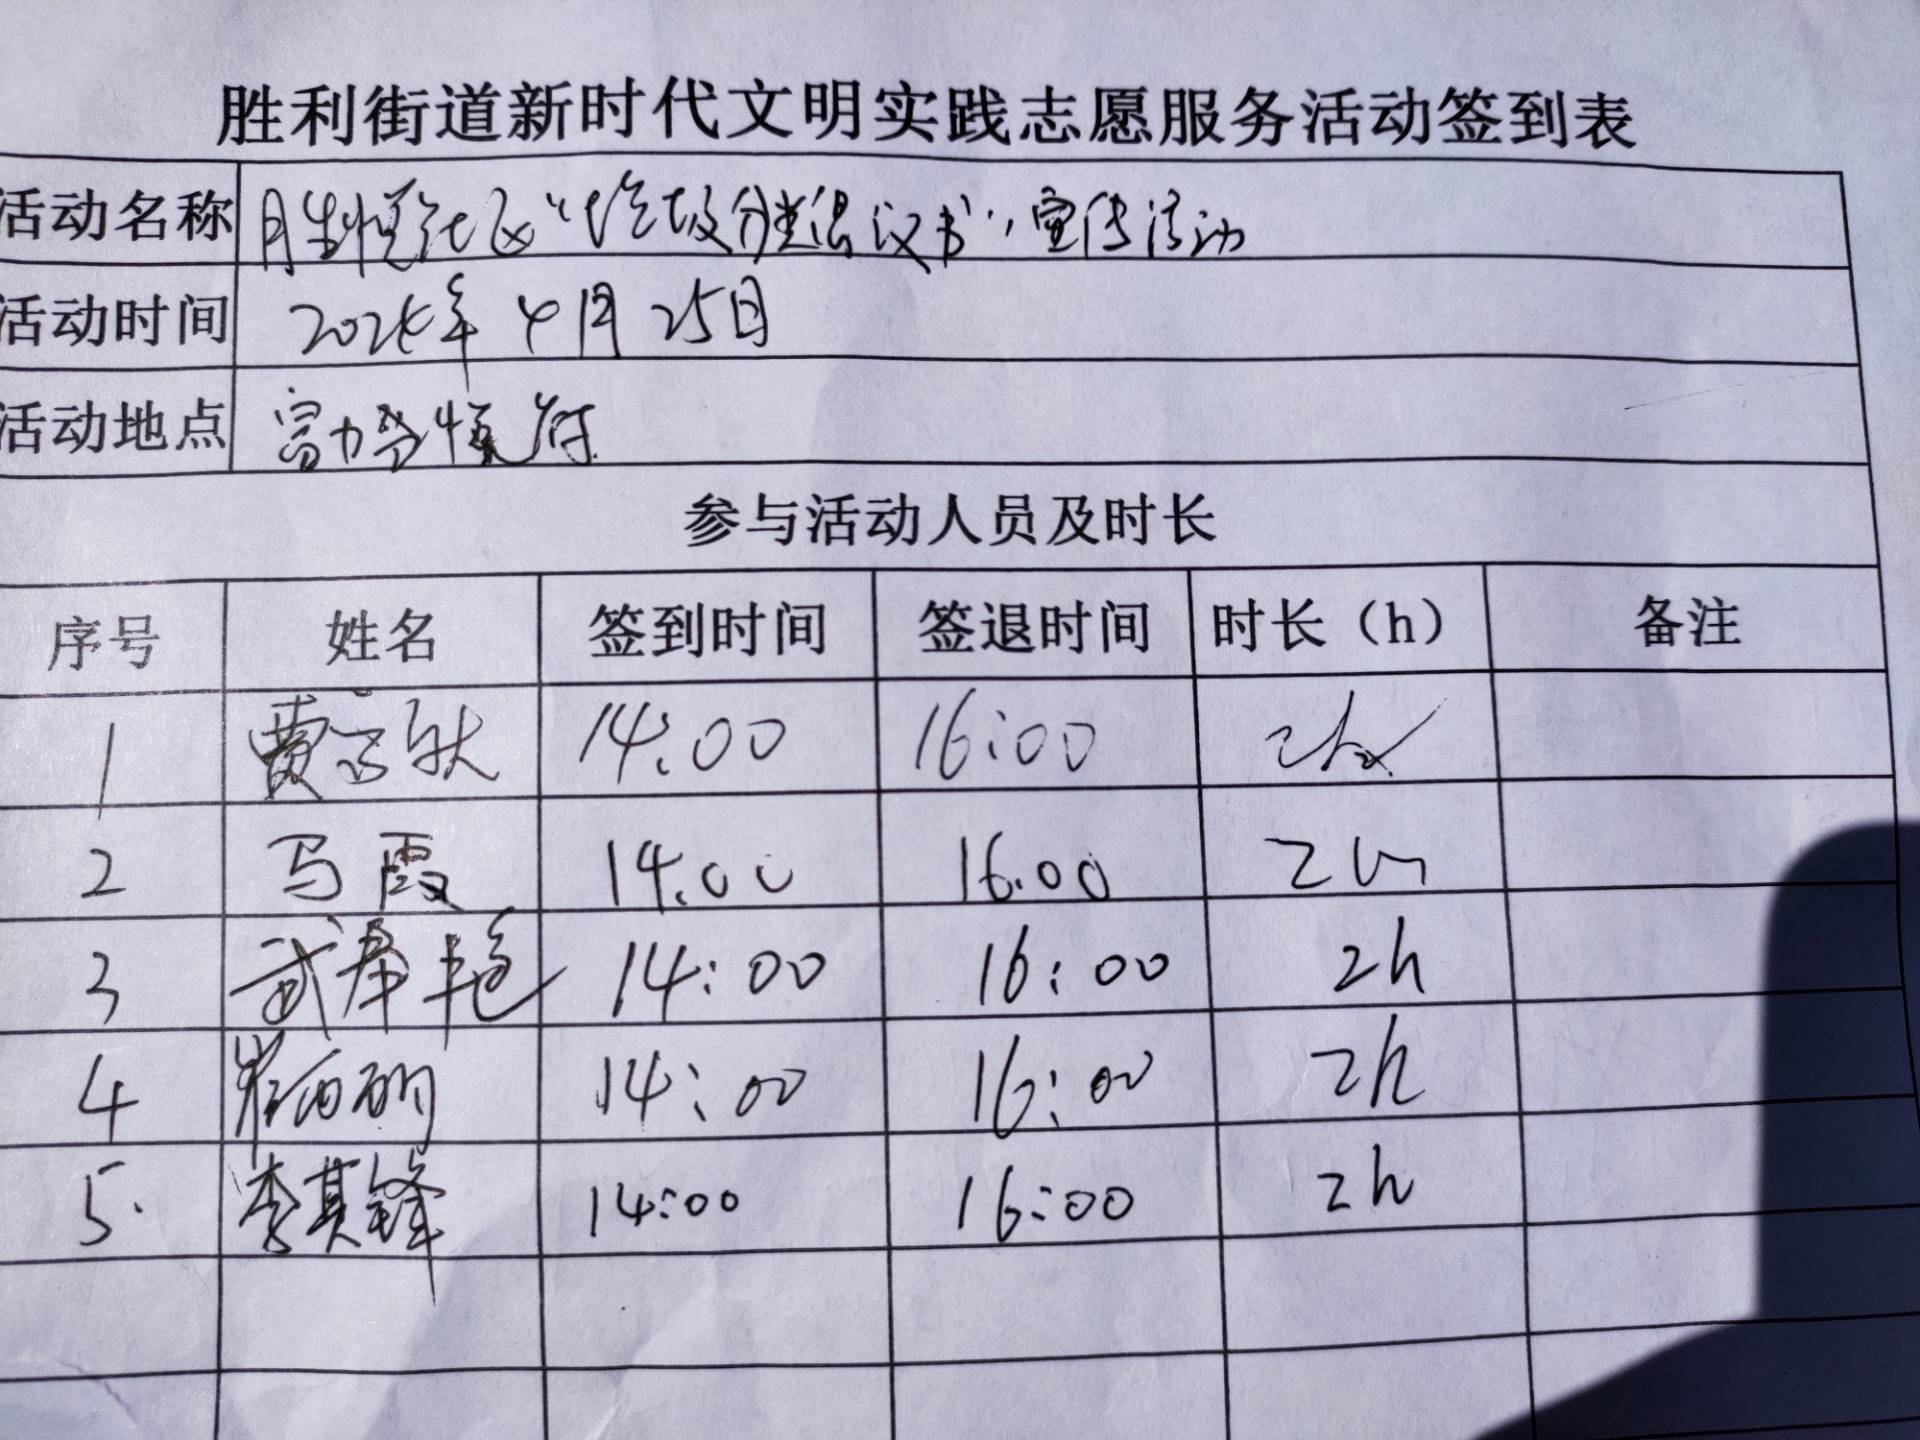 胜利街道新时代文明实践志愿服务活动签到表
活动名称 胜悦社区“垃圾分类倡议书”宣传活动
活动时间 年4月25日
活动地点 富力
参与活动人员及时长
序号 姓名 签到时间 签退时间 时长（h） 备注
1 费 14:00 16:00
2 马霞 14:00 16:00 2h
3 武春艳 14:00 16:00 2h
4 崔 14:00 16:00 2h
5. 李其锋 14:00 16:00 2h